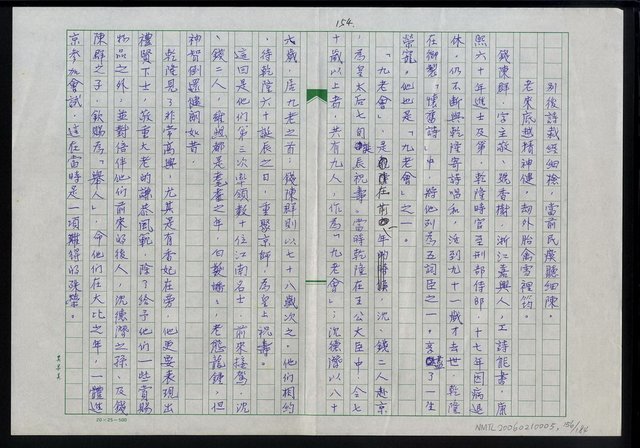 154.
別後詩裁經細捻，當前民瘼聽細陳。
老來底越精神健，劫外胎禽雪裡筠。
錢陳群，字主敬、號香樹，浙江嘉興人，工詩能書，康
熙六十年進士及第，乾隆時官至刑部侍郎，十七年因病退
休，仍不斷與乾隆寄詩唱和，活到九十一歲才去世，乾隆
在御製「懷舊詩」中，將他列為五詞臣之一。享盡了一生
榮寵。他也是「九老會」之一。
「九老會」，是乾隆在前一年 沈、錢二人赴京
，為皇太后七旬 辰祝壽。當時乾隆在王公大臣中，合七
十歲以上者，共有九人，作為「九老會」；沈德潛以八十
六歲，居九老之首，錢陳群則以七十八歲次之。他們相約
，待乾隆六十誕辰之日，重聚京師，為皇上祝壽。
這回是他們第三次率領數十位江南名士，前來接駕，沈
、錢二人，縱然都是耄耋之年，白鬢 ，老態龍鍾，但
神智倒還健朗如昔。
乾隆見了非常高興，尤其是有香妃在旁，他更要表現出
禮賢下士，敬重大老的謙恭風範，除了給予他們一些賞賜
物品之外，並對陪伴他們前來的後人，沈德潛之孫、及錢
陳群之子，欽賜為「舉人」，令他們在大比之年，一體進
京參加會試，這在當時是一項難得的殊榮。
20×25=500
NMTL20060210005, 154/184